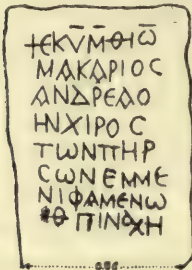 +ΕΚΥΜΘΙѠ
ΜΑΚΑΡΙΟϹ
ΑΝΔΡΕΑΟ
ΗΝΧΙΡΟϹ
ΤΩΝΠΗΡ
ϹΩΝΕΜΜΕ
ΝΙΦΑΜΕΝΩ
ΠΙΝΟΧΗ